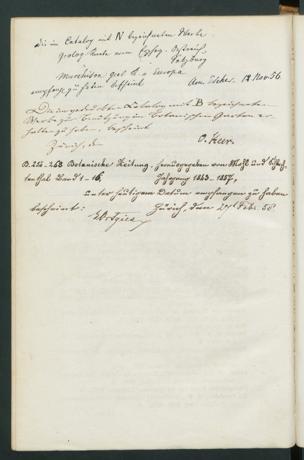 Die im Catalog mit N bezeichneten Werke
geolog. Karte von Östreich,
Salzburg
Murchison geol. K. v. Europa
empfangen zu haben bescheint Arn. Escher. 18 Nov 56
Die im gedruckten Catalog mit B bezeichneten
Werke zur Benutzung im botanischen Garten er-
halten zu haben, bescheint
Zürich, den O. Heer.
B. 256-268 Botanische Zeitung, herausgegeben von Mohl und Schlech-
tenthal Band 1-15, Jahrgang 1843-1857,
unter heutigem Datum empfangen zu haben
bescheint: Zürich, den 27t Febr. 58.
E. Ortgies